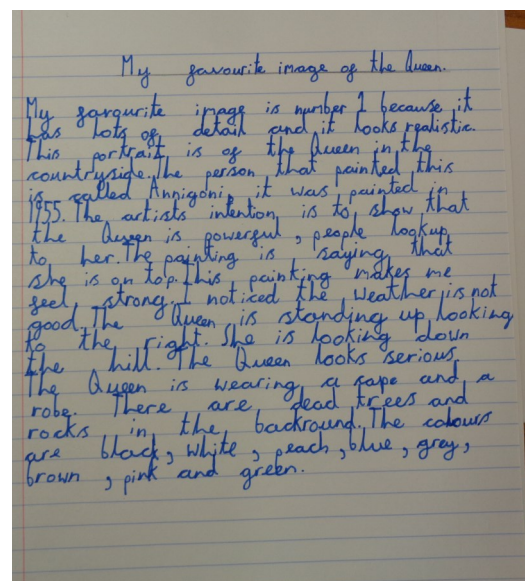 My favourite image of the Queen.
My favourite image is number 1 because it
has lots of detail and it looks realistic.
This portrait is of the Queen in the
countryside. The person that painted this
is called Annigoni, it was painted in
1955. The artists intention is to show that
the Queen is powerful, people look up
to her. The painting is saying that
she is on top. This painting makes me
feel strong. I noticed the weather is not
good. The Queen is standing up, looking
to the right. She is looking down
the hill. The Queen looks serious.
The Queen is wearing a cape and a
robe. There are dead trees and
rocks in the backround. The colours
are black, white, peach, blue, grey,
brown, pink and green.